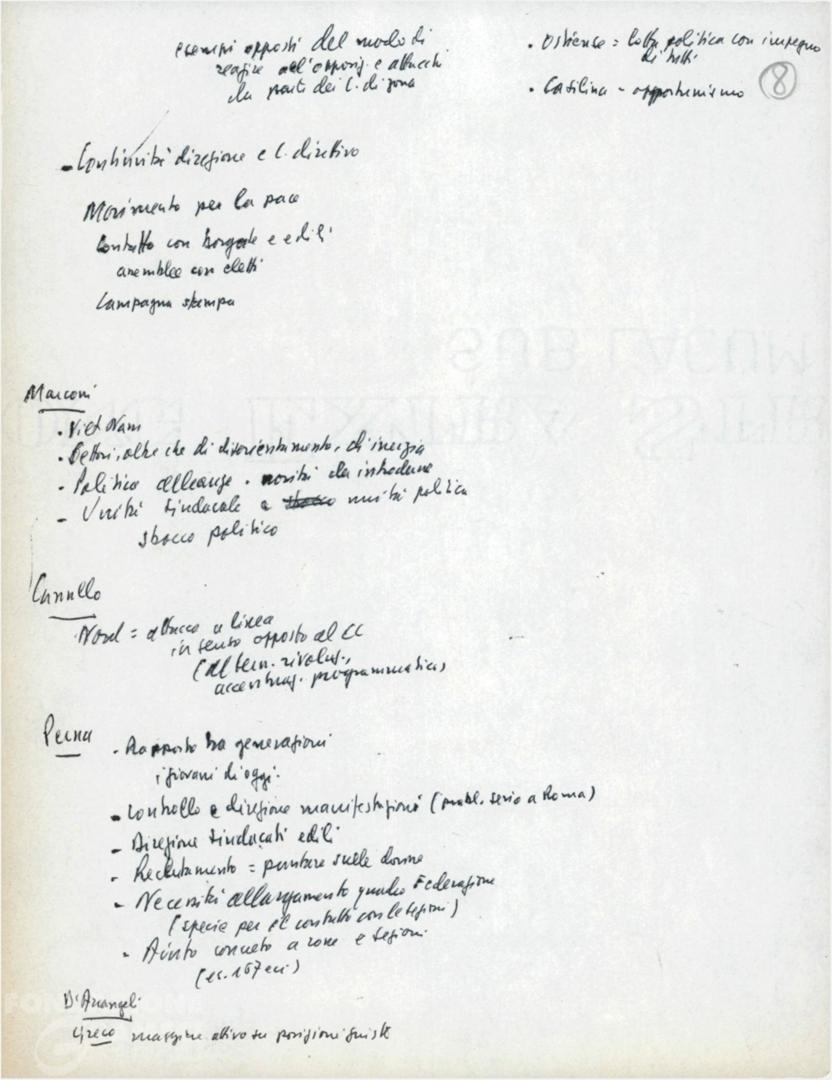 esempi opposti del modo di
reagire all'opposiz. e attacchi
da parte dei C. di zona
• Ostiense = lotta politica con impegno
di tutti
• Casilina - opportunismo
8
- Continuità direzione e C. direttivo
Movimento per la pace
Contatto con borgate e edili
assemblee con eletti
Campagna stampa
Marconi
• Viet Nam
• Settori, oltre che di disorientamento, di inerzia
• Politica alleanze • novità da introdurre
- Unità sindacale a unità politica
sbocco politico
Nord = attacco a linea
in senso opposto al CC
(altern. rivoluz.,
accentuaz. programmatica)
Perna
• Rapporto tra generazioni
i giovani di oggi.
- Controllo e direzione manifestazioni (probl. serio a Roma)
- Direzione sindacati edili
- Reclutamento = puntare sulle donne
- Necessità allargamento quadro Federazione
(specie per il contatto con le sezioni)
- Aiuto concreto a zone e sezioni
(es. 167 ecc)
Greco massime attivo su posizioni giuste
SUB LACUM